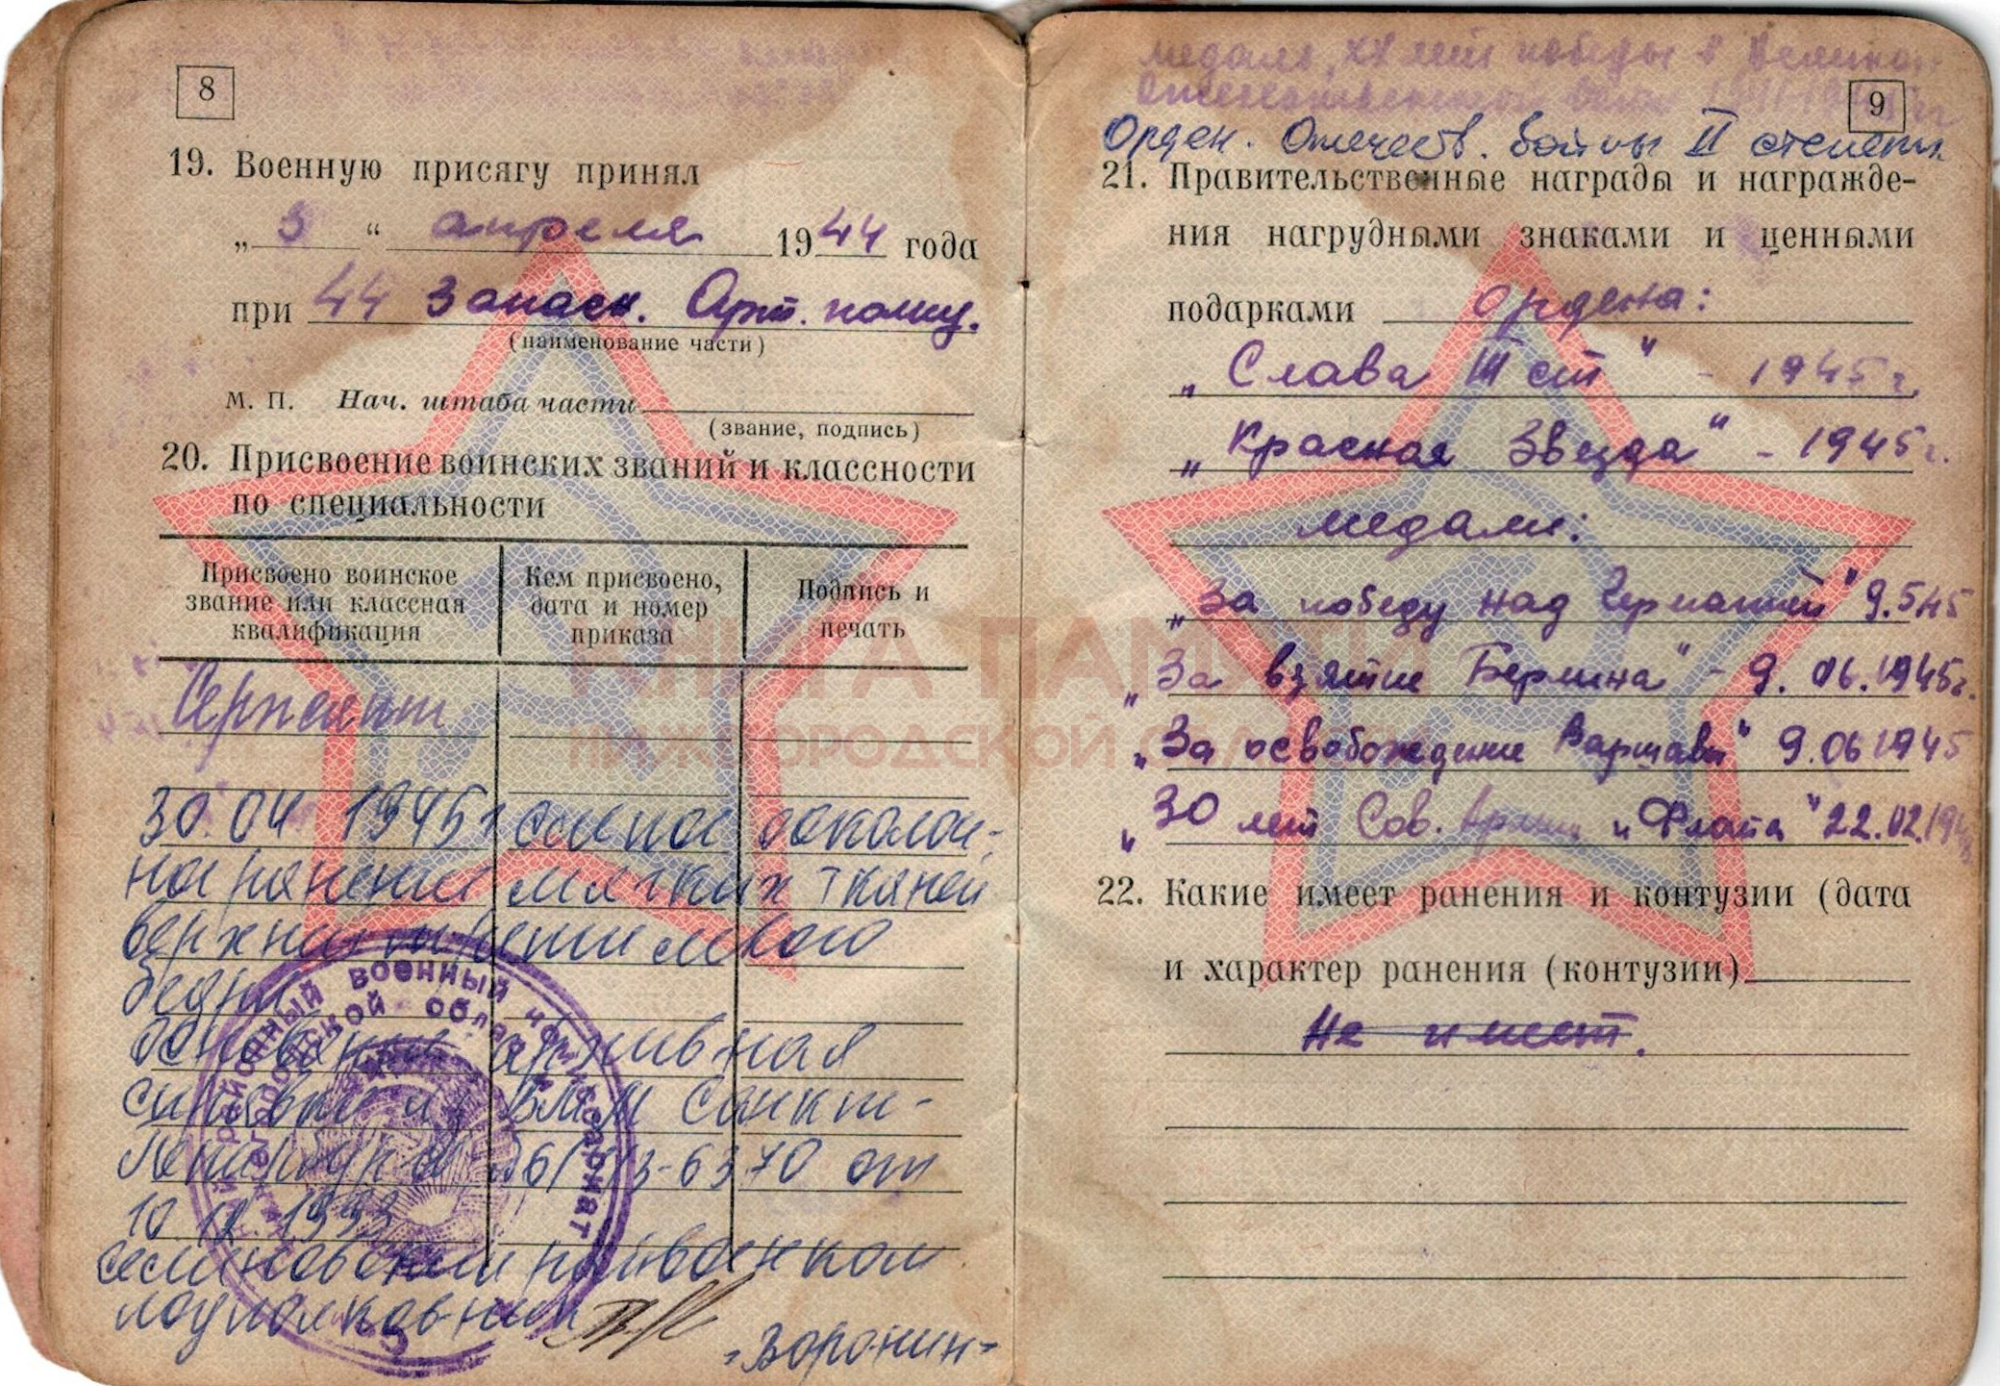 8
19. Военную присягу принял
„ 3 “ апреля 1944 года
при 44 Запасн. Арт. полку.
(наименование части)
М. П. Нач. штаба части
(звание, подпись)
20. Присвоение воинских званий и классности
по специальности
Присвоено воинское звание или классная квалификация
Кем присвоено, дата и номер приказа
Подпись и печать
Сержант
30.04 1945г слепое осколоч-
ное ранение мягких тканей
верхней трети левого
бедра
Основание архивная
справка из ВММ Санкт-
Петербург 6370 от
10 1993
Семеновский райвоенком
подполковник
Воронин
районный военный комиссариат
КНИГА ПАМЯТИ
НИЖЕГОРОДСКОЙ ОБЛАСТИ
медаль „XX лет победы в Великой
Отечественной войне
9
Орден. Отечеств. войны II степени
21. Правительственные награды и награжде-
ния нагрудными знаками и ценными
подарками ордена:
„Слава III ст“ - 1945г.
„Красная Звезда“ - 1945г.
медали:
„За победу над Германией“ 9.5.45
„За взятие Берлина“ - 9. 06. 1945г.
„За освобождение Варшавы“ 9.06 1945
„30 лет Сов. Армии и Флота“ 22.02.19
22. Какие имеет ранения и контузии (дата
и характер ранения (контузии)
Не имеет.